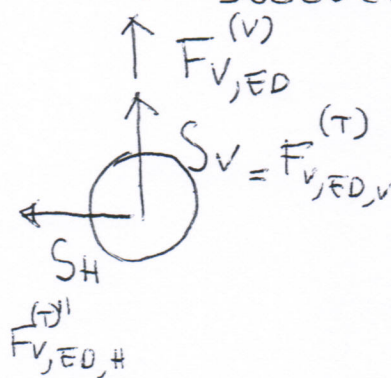 F_{V,ED}^{(V)}
S_V = F_{V,ED,V}^{(T)}
S_H
F_{V,ED,H}^{(T)}